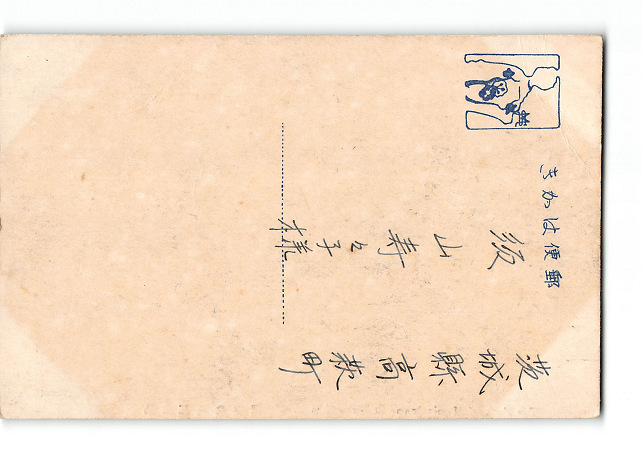 郵便はかき
茨城縣高萩町
須山寿子様